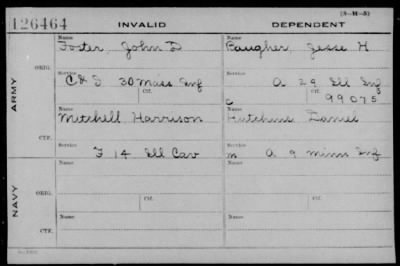 (3-M-5)
126464 INVALID DEPENDENT
Name Name
Foster, John D Baugher, Jesse H
ARMY
ORIG.
Service Service
C & D 30 Mass Inf A 29 Ill Inf
Ctf. Ctf.
C 99075
Name Name
Mitchell Harrison Hutchins Daniel
CTF.
Service Service
F 14 Ill Cav m A 9 minn Inf
NAVY
Name Name
ORIG.
Service Ctf. Service Ctf.
Name Name
CTF.
Service Service